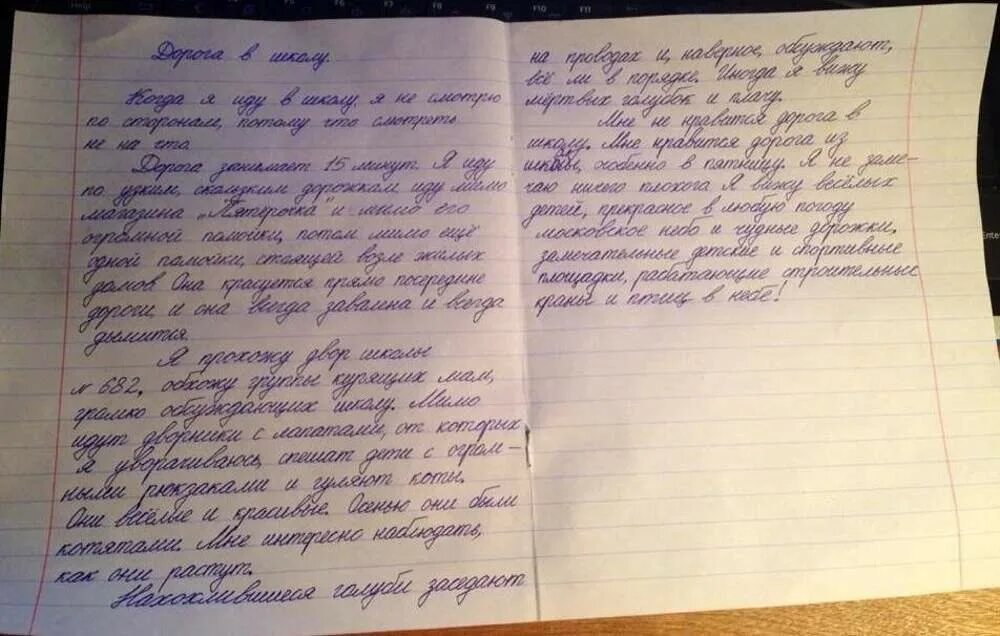 Дорога в школу.
Когда я иду в школу, я не смотрю
по сторонам, потому что смотреть
не на что
Дорога занимает 15 минут. Я иду
по узким, скользким дорожкам иду мимо
магазина „Пятерочка" и мимо его
огромной помойки, потом мимо ещё
одной помойки, стоящей возле жилых
домов Она красуется прямо посередине
дороги и она всегда завалена и всегда
дымится.
Я прохожу двор школы
№ 682, обхожу группы курящих мам,
грамко обсуждающих школу. Мимо
идут дворники с лапатами, от которых
я уворачиваюсь, спешат дети с огром-
ными рюкзаками и гуляют коты.
Они весёлые и красивые. Осенью они были
котятами. Мне интересно наблюдать,
как они растут.
Нахохлившиеся голуби заседают
на проводах и, наверное, обсуждают,
всё ли в порядке. Иногда я вижу
мёртвых голубок и плачу.
Мне не нравится дорога в
школу. Мне нравится дорога из
школы, особенно в пятницу. Я не заме-
чаю ничего плохога Я вижу весёлых
детей, прекрасное в любую погоду
московское небо и чудные дорожки,
замечательные детские и спортивные
площадки, рабатающие строительных
краны и птиц в небе!